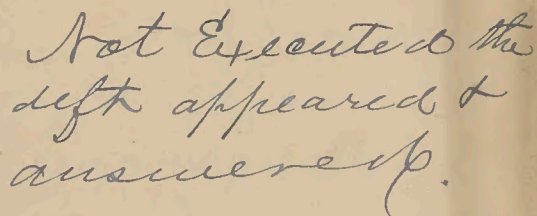 Not Executed the
deft appeared &
answered.